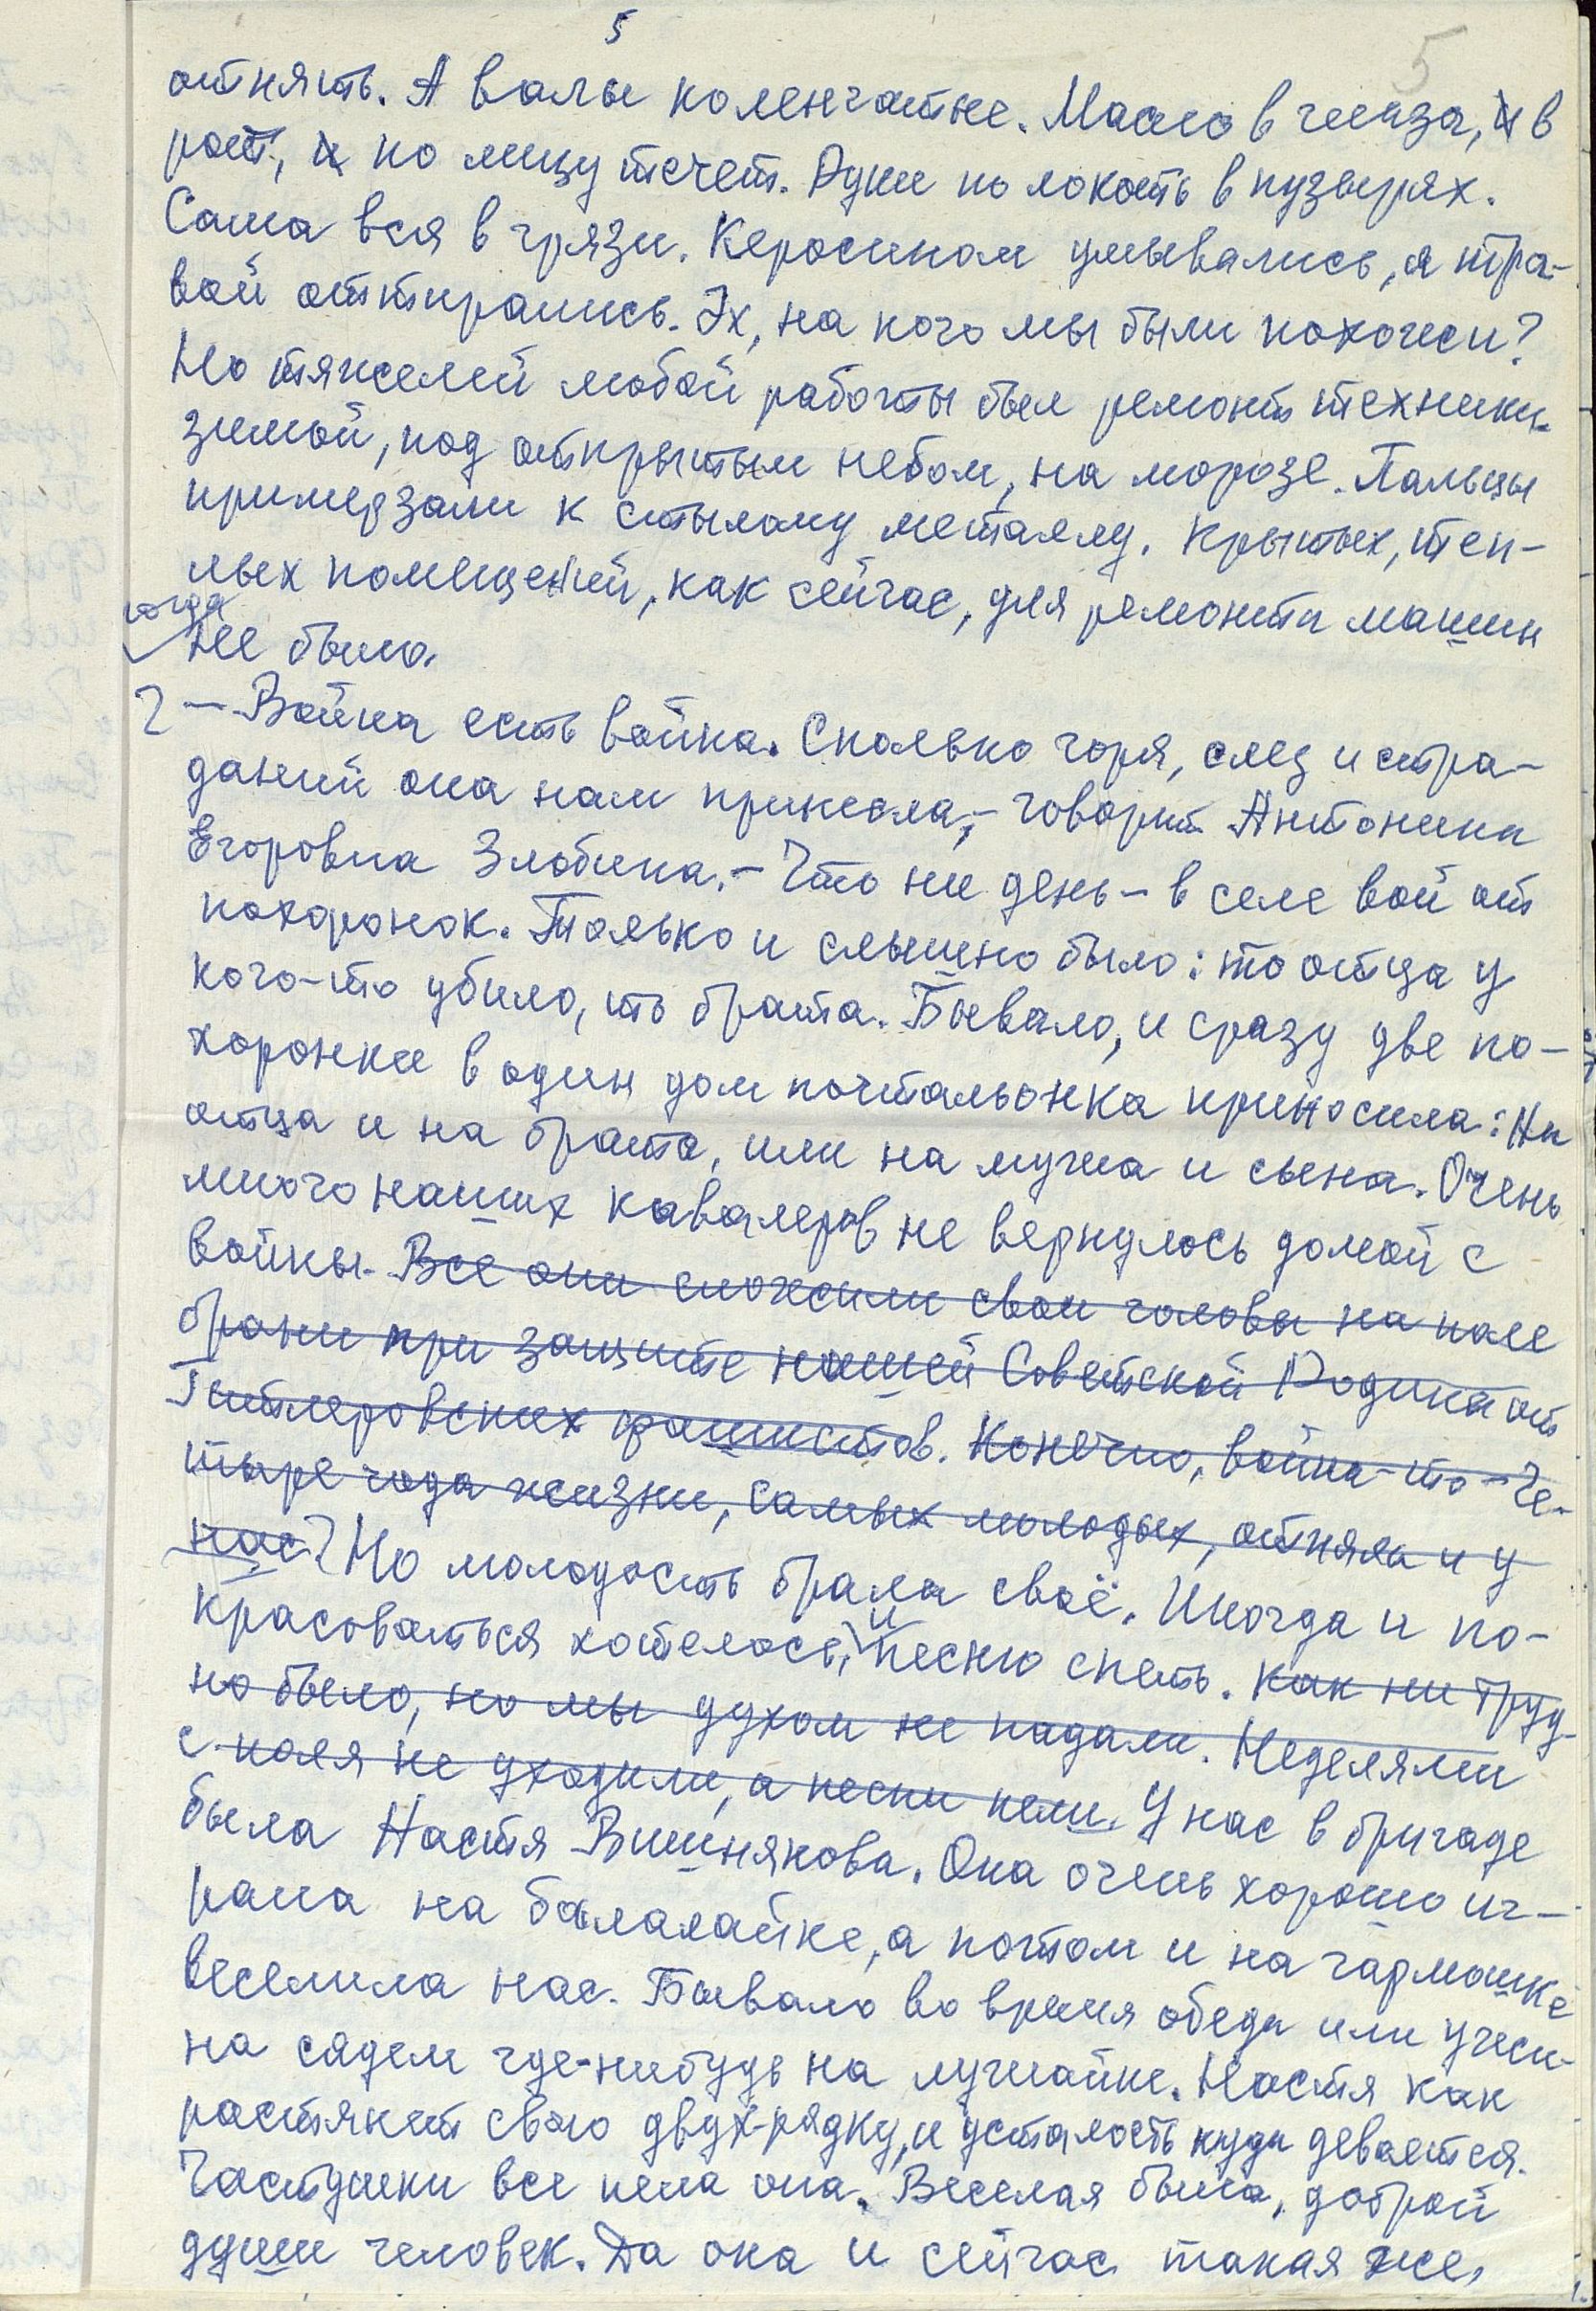 5
5
отнять. А валы коленчатые. Масло в глаза, и в
рот, и по лицу течет. Руки по локоть в пузырях.
Сама вся в грязи. Керосином умывались, а тра-
вой оттирались. Эх, на кого мы были похожи?
Но тяжелей любой работы был ремонт техники
зимой, под открытым небом, на морозе. Пальцы
примерзали к стылому металлу. Крытых, теп-
лых помещений, как сейчас, для ремонта машин
тогда
не было.
? — Война есть война. Сколько горя, слез и стра-
даний она нам принесла, — говорит Антонина
Егоровна Злобина. — Что ни день — в селе вой от
похоронок. Только и слышно было: то отца у
кого-то убило, то брата. Бывало, и сразу две по-
хоронки в один дом почтальонка приносила: На
отца и на брата, или на мужа и сына. Очень
много наших кавалеров не вернулось домой с
войны. Все они сложили свои головы на поле
брани при защите нашей Советской Родины от
Гитлеровских фашистов. Конечно, война-то — че-
тыре года жизни, самых молодых, отняла и у
нас? Но молодость брала своё. Иногда и по-
красоваться хотелось, и песню спеть. Как ни труд-
но было, но мы духом не падали. Неделями
с поля не уходили, а песни пели. У нас в бригаде
была Настя Вишнякова. Она очень хорошо иг-
рала на балалайке, а потом и на гармошке
веселила нас. Бывало во время обеда или ужи-
на сядем где-нибудь на лужайке. Настя как
растянет свою двух-рядку, и усталость куда девается.
Частушки все пела она. Веселая была, доброй
души человек. Да она и сейчас такая же,